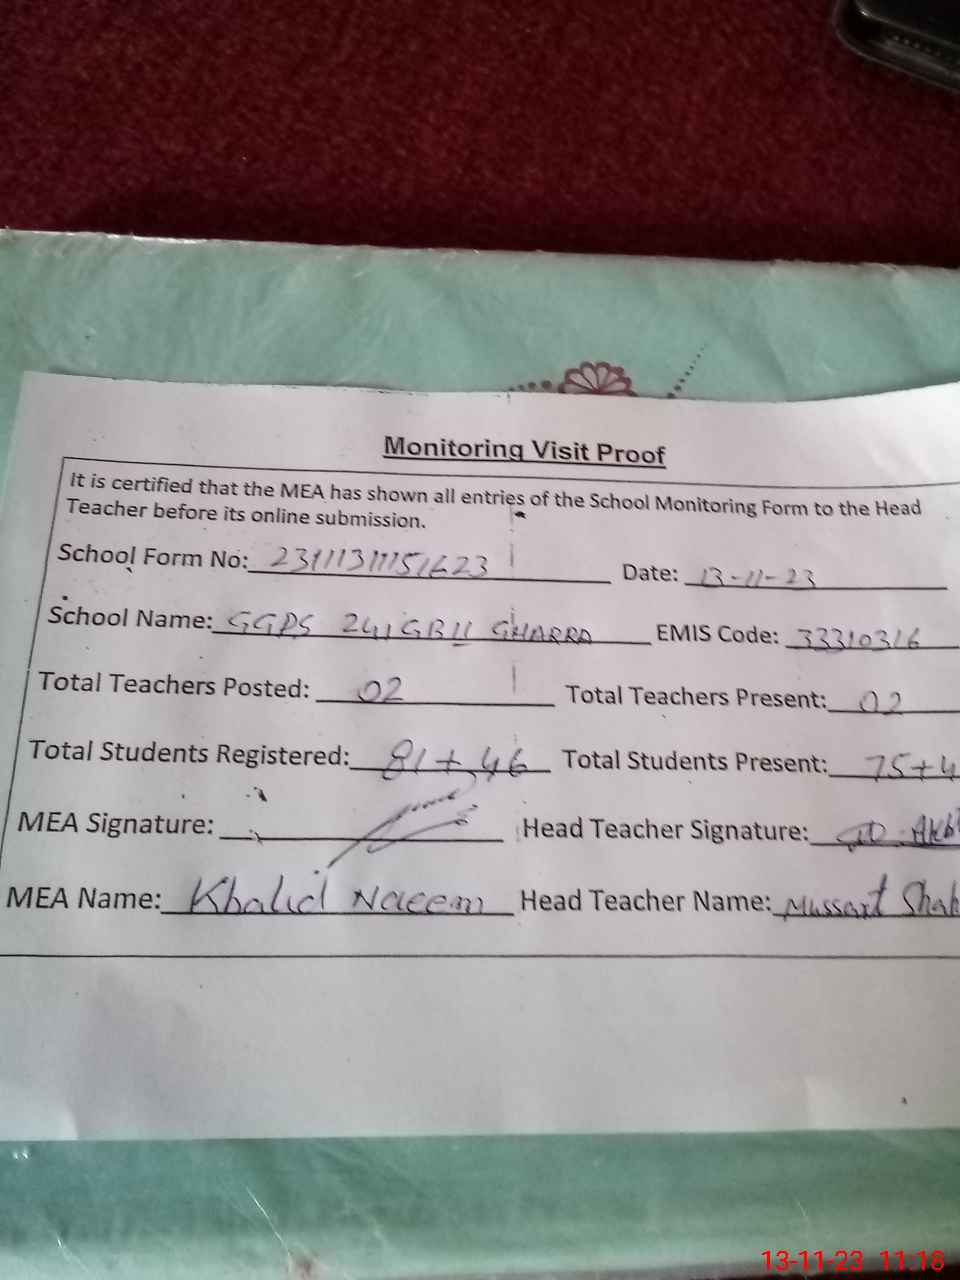 Monitoring Visit Proof
It is certified that the MEA has shown all entries of the School Monitoring Form to the Head
Teacher before its online submission.
School Form No: 23111311151623 Date: 13-11-23
School Name: GGPS 241 GB II GHARRA EMIS Code: 33310316
Total Teachers Posted: 02 Total Teachers Present: 02
Total Students Registered: 81+46 Total Students Present: 75+4
MEA Signature: Head Teacher Signature:
MEA Name: Khalid Naeem Head Teacher Name: Mussart Shah
13-11-23 11:18